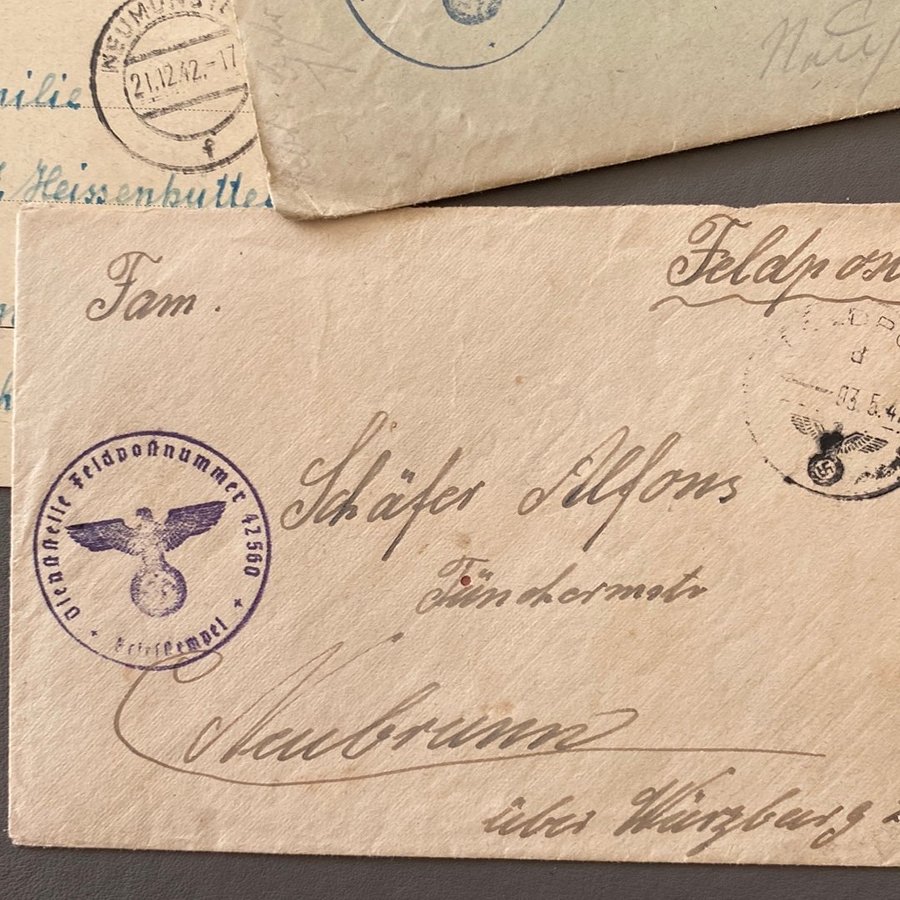 NEUMÜNSTE
21.12.42.-17
f
milie
Heissenbütte
Feldpos
Fam.
d
03.5.4
Dienststelle Feldpostnummer 42560
Briefstempel
Schäfer Alfons
Tünchermstr
Neubrunn
über Würzburg 2